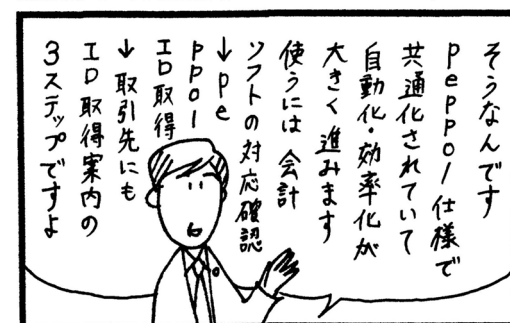 そうなんです
peppol仕様で
共通化されていて
自動化・効率化が
大きく進みます
使うには 会計
ソフトの対応確認
↓pe
ppol
ID取得
↓取引先にも
ID取得案内の
3ステップですよ